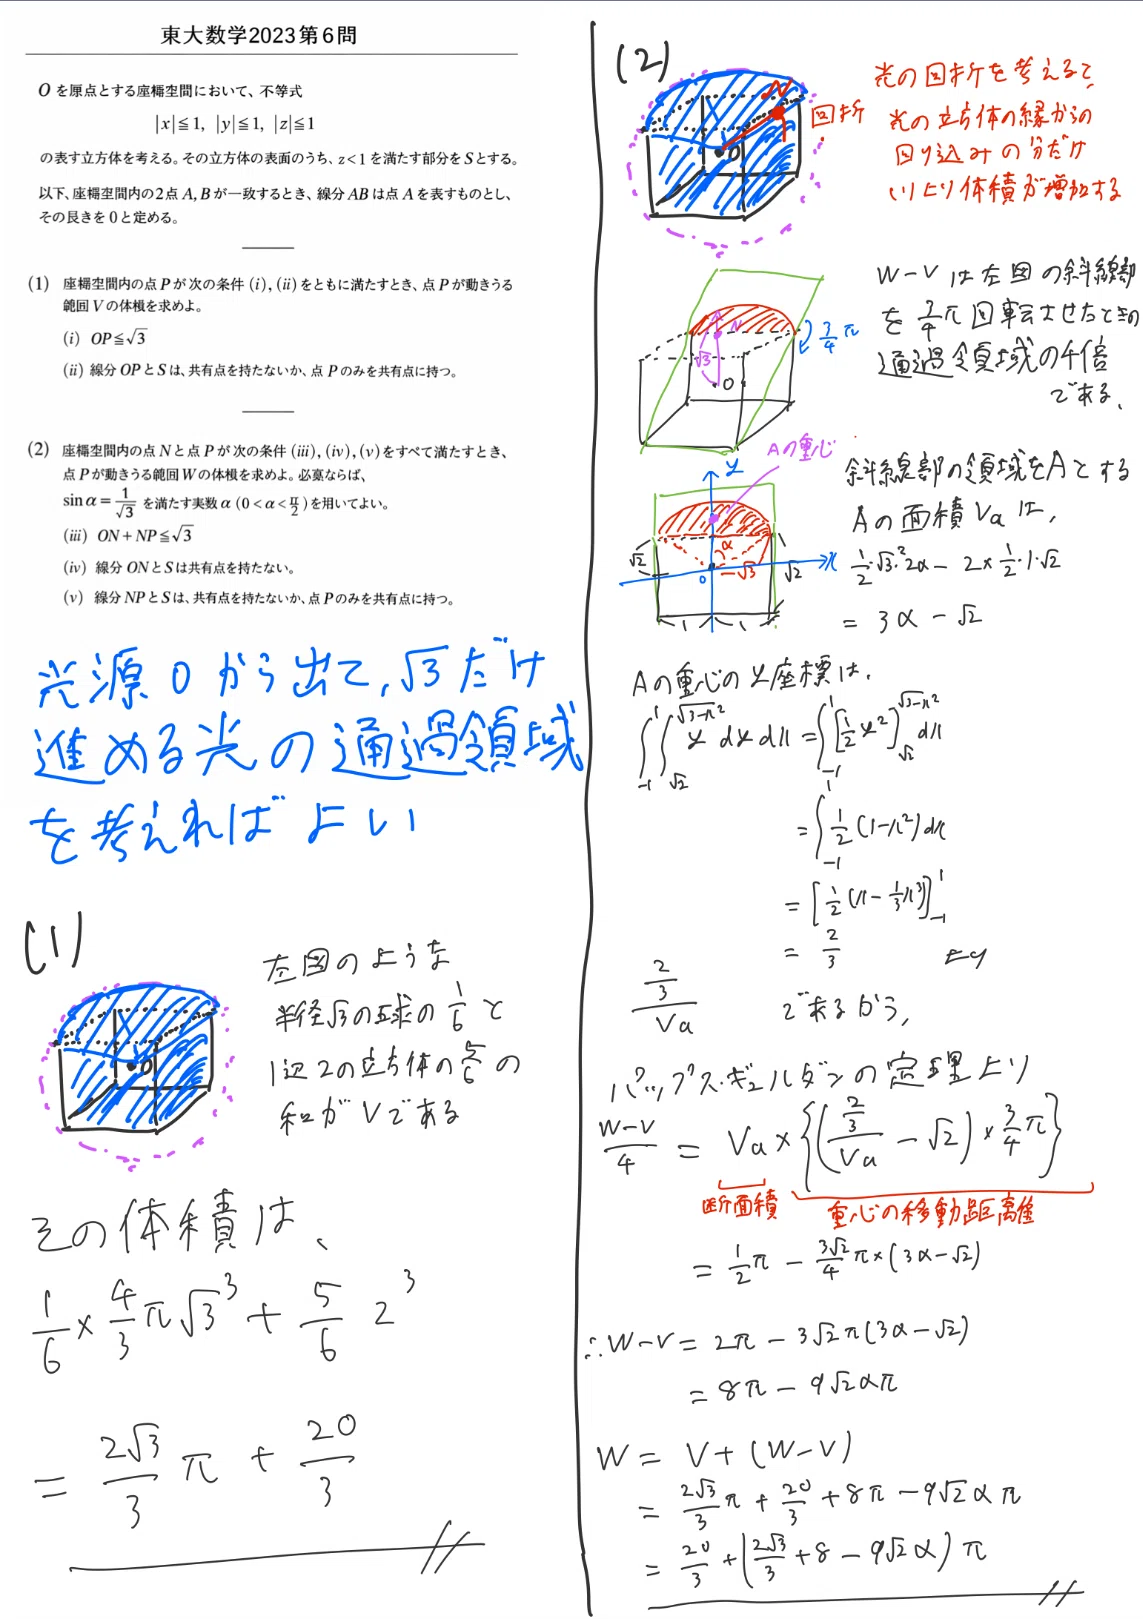 東大数学2023第6問
Oを原点とする座標空間において、不等式
|x|≦1, |y|≦1, |z|≦1
の表す立方体を考える。その立方体の表面のうち、z<1を満たす部分をSとする。
以下、座標空間内の2点A, Bが一致するとき、線分ABは点Aを表すものとし、
その長さを0と定める。
(1) 座標空間内の点Pが次の条件(i), (ii)をともに満たすとき、点Pが動きうる
範囲Vの体積を求めよ。
(i) OP≦√3
(ii) 線分OPとSは、共有点を持たないか、点Pのみを共有点に持つ。
(2) 座標空間内の点Nと点Pが次の条件(iii), (iv), (v)をすべて満たすとき、
点Pが動きうる範囲Wの体積を求めよ。必要ならば、
sinα=1/√3 を満たす実数α(0<α<π/2)を用いてよい。
(iii) ON+NP≦√3
(iv) 線分ONとSは共有点を持たない。
(v) 線分NPとSは、共有点を持たないか、点Pのみを共有点に持つ。
光源Oから出て、√3だけ
進める光の通過領域
を考えればよい
(1)
O
左図のような
半径√3の球の1/6と
1辺2の立方体の5/6の
和がVである
その体積は、
1/6×4/3π√3³+5/6 2³
=2√3/3π+20/3
(2)
N
O
回折
光の回折を考えると、
光の立方体の縁からの
回り込みの分だけ
(1)より体積が増加する
N
√3
O
3/4π
W-Vは左図の斜線部
を3/4π回転させたときの
通過領域の4倍
である、
Aの重心
y
α
√2
√3
√2
x
0
1
1
斜線部の領域をAとする
Aの面積Vaは、
1/2・√3²・2α-2×1/2・1・√2
=3α-√2
Aの重心のy座標は、
∫₋₁¹∫_√2^√(3-x²) y dy dx=∫₋₁¹[1/2y²]_√2^√(3-x²) dx
=∫₋₁¹1/2(1-x²)dx
=[1/2(x-1/3x³)]₋₁¹
=2/3 より
(2/3)/Va であるから、
パップス・ギュルダンの定理より
(W-V)/4=Va×{((2/3)/Va-√2)×3/4π}
断面積
重心の移動距離
=1/2π-3√2/4π×(3α-√2)
∴W-V=2π-3√2π(3α-√2)
=8π-9√2απ
W=V+(W-V)
=2√3/3π+20/3+8π-9√2απ
=20/3+(2√3/3+8-9√2α)π